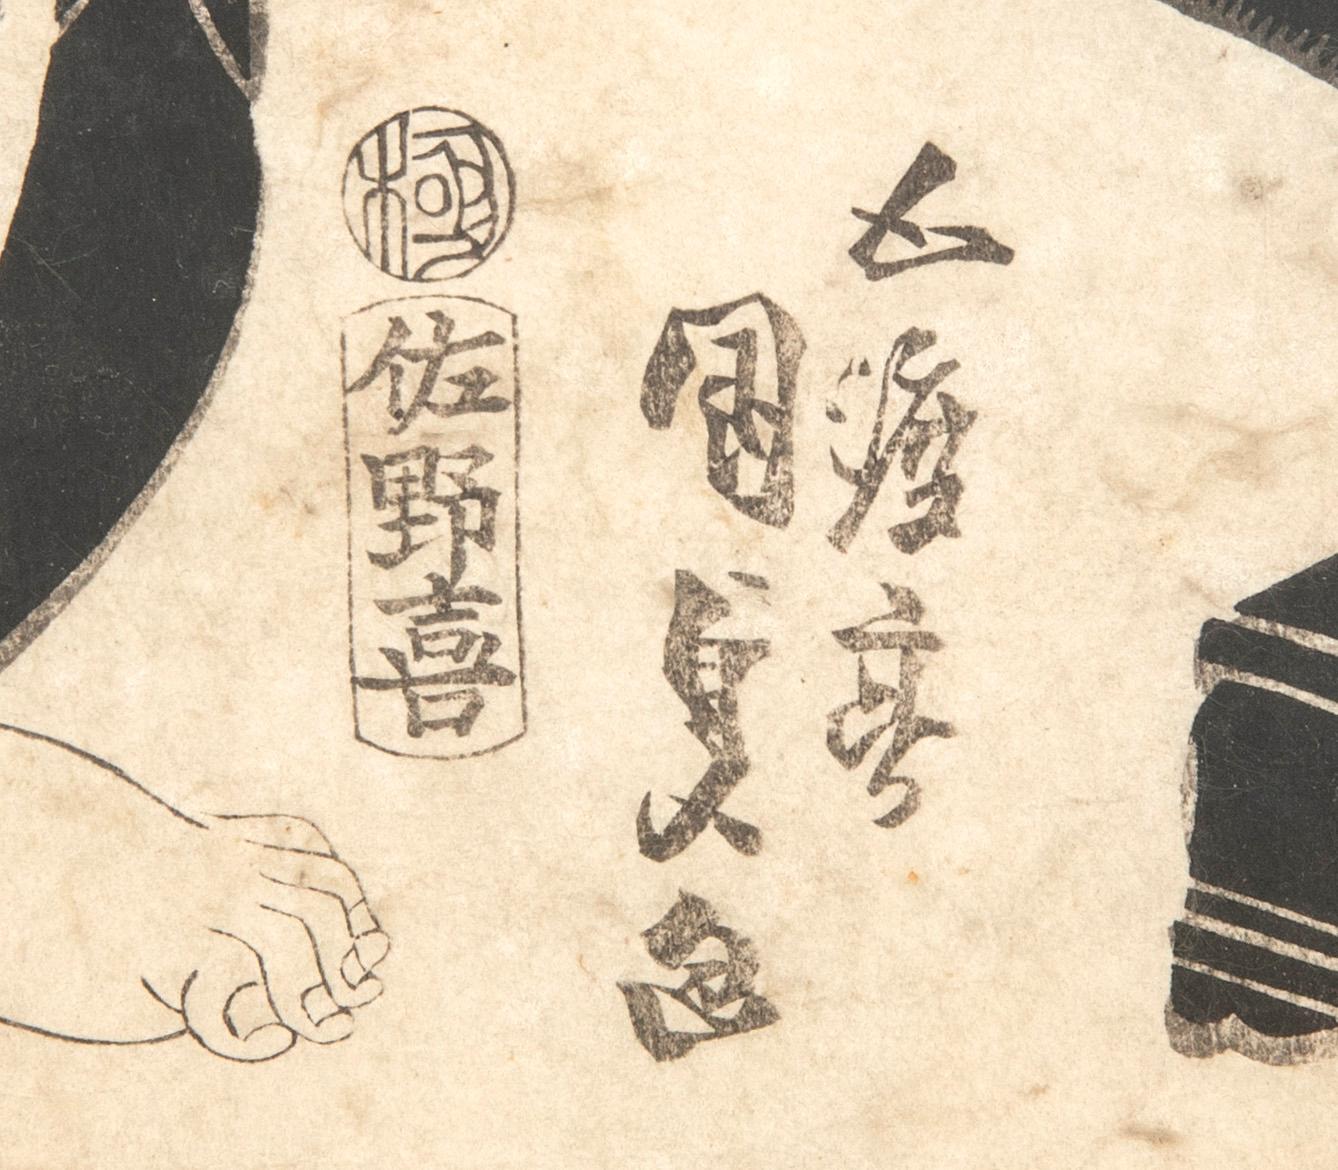 五渡亭
国貞画
極
佐野喜